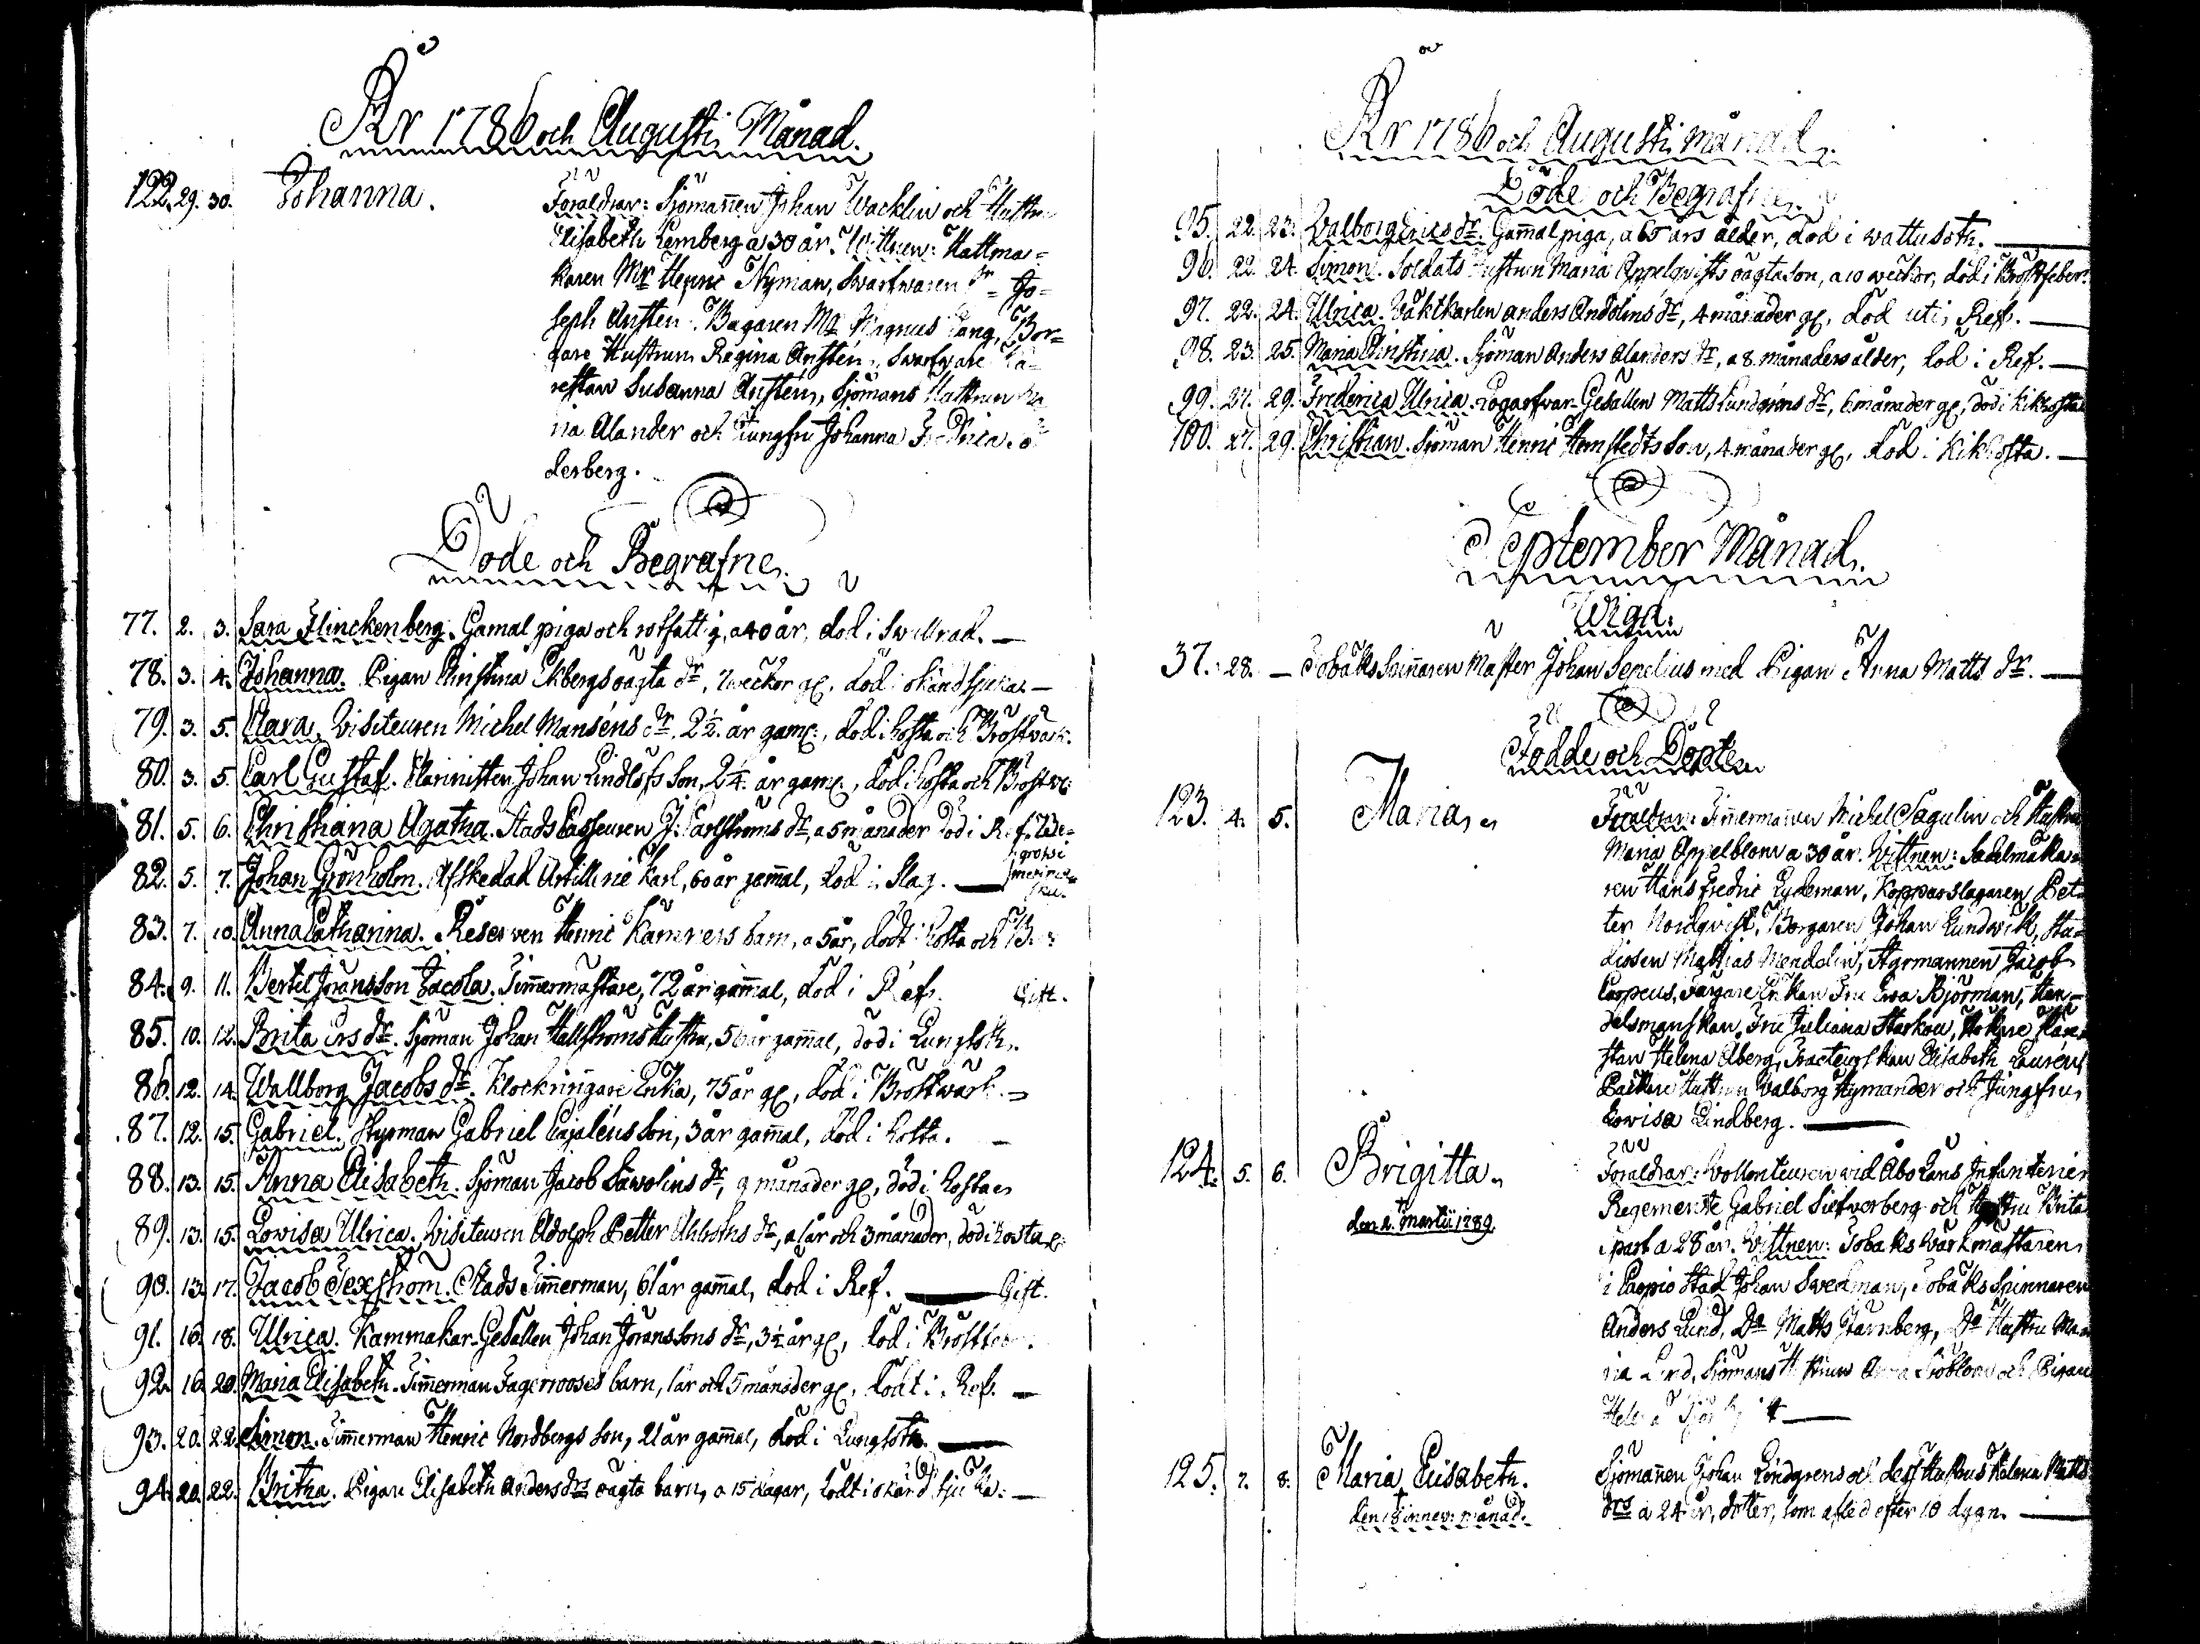 År 1786 och Augusti Månad.
122. 29. 30. Johanna. Föräldrar: Sjömannen Johan Wacklin och Hustru
Elisabeth Lemberg a 30 år. Wittnen: Hattma=
karen Mr Henric Nyman, Swarfwaren Jo=
seph Anstén. Bagaren Mr Magnus Tang, Bor=
gare Hustrun Regina Anstén, Swarfvare
Susanna Anstén, Sjömans Hustrun Ma
ria Alander och Jungfru Johanna
derberg.
Döde och Begrafne.
77. 2. 3. Sara Flinckenberg. Gamal piga och rotfattig, a 40 år, död i Swullnad. —
78. 3. 4. Johanna. Pigan Christina Ekbergs oägta dr, 7 weckor gl. död i okänd sjukd. —
79. 3. 5. Clara. Visiteuren Michel Manséns dr, 2½ år gaml:, död i hosta och Bröstvärk.
80. 3. 5. Carl Gustaf. Klarinisten Johan Lindlöfs Son, 2¼ år gaml:, död i hosta och Bröstv:
81. 5. 6. Christiana Agatha. Stads Casseuren J: Carlströms dr, a 5 månader död i Ref.
82. 5. 7. Johan Grönholm. Afskedad Artillerie Karl, 60 år gammal, död i Slag. —
83. 7. 10. Anna Catharina. Reserven Henric Kamrers barn, a 5 år, dödt i hosta och
84. 9. 11. Bertil Göransson Jacola. Timmermästare, 72 år gammal, död i Ref. Gift.
85. 10. 12. Brita Ers dr. Sjöman Johan Hallströms Hustru, 56 år gammal, död i Lungsoth.
86. 12. 14. Wallborg Jacobs dr. Klockringare Enka, 75 år gl, död i Bröstwärk. =
87. 12. 15. Gabriel. Styrman Gabriel Cajaléns Son, 3 år gammal, död i hosta. —
88. 13. 15. Anna Elisabeth. Sjöman Jacob Sawolins dr, 9 månader gl, död i hosta
89. 13. 15. Lowisa Ulrica. Visiteuren Adolph Petter Ahlboms dr, a 1 år och 3 månader, död i hosta
90. 13. 17. Jacob Texström. Stads Timmerman, 61 år gammal, död i Ref. — Gift.
91. 16. 18. Ulrica. Kammakar-Gesällen Johan Jöranssons dr, 3½ år gl, död i
92. 16. 20. Maria Elisabeth. Timmerman Fagerrooses barn, 1 år och 5 månader gl, dödt i Ref. —
93. 20. 22. Simon. Timmerman Henric Nordbergs Son, 21 år gammal, död i Lungsoth. —
94. 20. 22. Britha. Pigan Elisabeth Anders drs oägta barn, a 15 dagar, dödt i okänd sjukd. —
År 1786 och Augusti månad.
Döde och Begrafne.
95. 22. 23. Walborg Erics dr. Gammal piga, a 65 års ålder, död i wattusoth. —
96. 22. 24. Simon. Soldats Hustrun Maria Appelqvists oägta Son, a 10 weckor, död i Bröstfeber.
97. 22. 24. Ulrica. Vaktkarlen Anders Andolins dr, 4 månader gl, död uti Ref. —
98. 23. 25. Maria Christina. Sjöman Anders Alanders dr, a 8 månaders ålder, död i Ref. —
99. 27. 29. Frederica Ulrica. Logarfvar-Gesällen Matts Lundgréns dr, 6 månader gl, död i Kikhosta
100. 27. 29. Christian. Sjöman Henric Hemstedts Son, 4 månader gl, död i Kikhosta. —
September Månad.
Wigd.
37. 28. — Tobaksspinnaren Mäster Johan Senelius med Pigan Anna Matts dr. —
Födde och Döpte
123. 4. 5. Maria. Föräldrar: Timmermannen Michel Sagulin och Hustrun
Maria Appelblom a 30 år. Wittnen: Sadelmaka=
ren Hans Fredric Lydeman, Kopparslagaren Pet=
ter Nordqvist, Borgaren Johan Lundwik, Stu=
diosen Mathias Mendolin, Styrmannen Jacob
Carpeus, Färgare Enkan Fru Ewa Björman, Han=
delsmanskan Fru Juliana Starkou,
Helena Åberg, Tracteurskan Elisabeth Laurén,
Hustrun Valborg Hymander och Jungfru
Lowisa Lindberg. —
124. 5. 6. Brigitta. Föräldrar: Vollonteuren wid Åbo Läns Infanterie
den 2. Martii 1789. Regemente Gabriel Siefverberg och Hustru Brita
a 28 år. Wittnen: Tobaks Wärkmästaren
i Cuopio Stad Johan Swedman, Tobaks Spinnaren
Anders Lund, Do Matts Stärnberg, Do Hustru Ma
ria Lund, Sjömans Hustrun Anna Sjöblom och Pigan
Helena
125. 7. 8. Maria Elisabeth. Sjömannen Johan Lindgrens och dess Hustrus Helena Matts
den 18 innev: månad. drs a 24 år, dotter, som afled efter 10 dygn. —